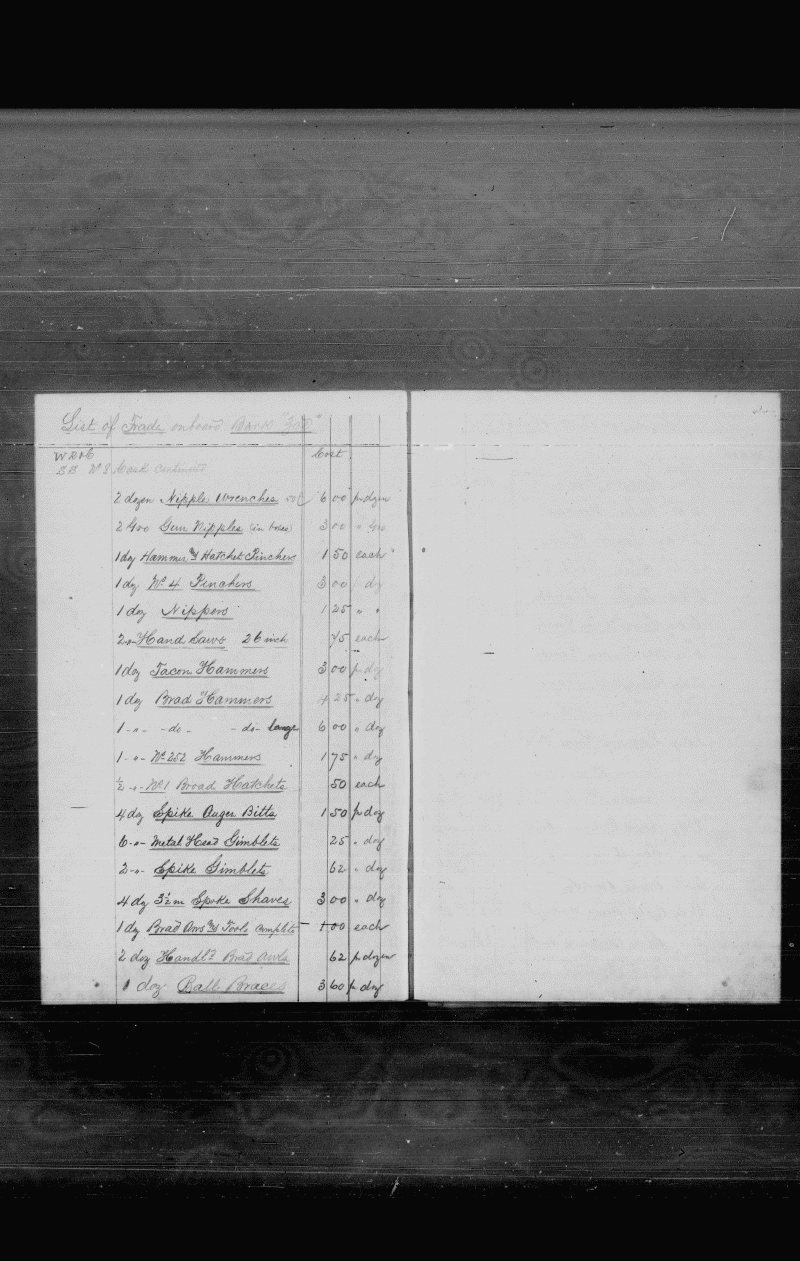 List of Trade onboard Bark "Zoe"
Cost
WRoC
BB No 8 Cask Continued
2 dozen Nipple Wrenches 6 00 pr dozen
2 Gro Gun Nipples (in boxes) 3 00 " Gro
1 doz Hammer & Hatchet Pinchers 1 50 each
1 doz No 4 Pinchers 3 00 doz
1 doz Nippers 1 25 " "
2 -"- Hand Saws 26 inch 75 each
1 doz Hammers 3 00 pr doz
1 doz Brad Hammers 4 25 " doz
1 -"- -do- -do- large 6 00 " doz
1 -"- No 252 Hammers 1 75 " doz
½ -"- No 1 Broad Hatchets 50 each
4 doz Spike Auger Bitts 1 50 pr doz
6 -"- Metal Head Gimblets 25 " doz
2 -"- Spike Gimblets 62 " doz
4 doz 3½ in Spoke Shaves 3 00 " doz
1 doz Brad & Tools complete 1 00 each
2 doz Handld Brad Awls 62 pr dozen
1 doz Ball Braces 3 60 pr doz